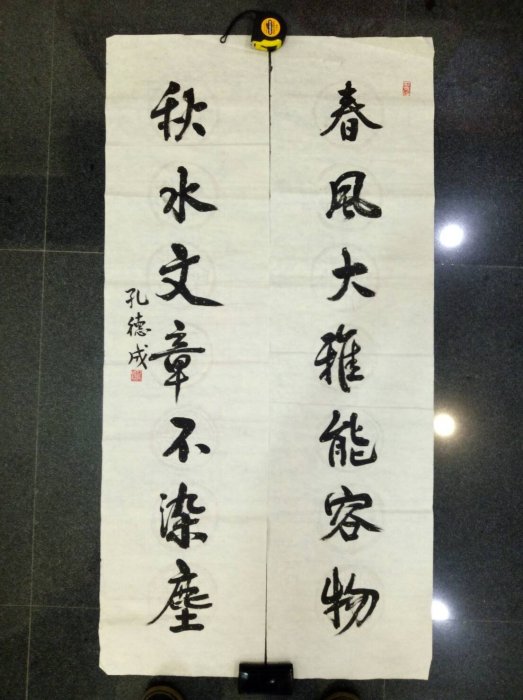 春風大雅能容物
秋水文章不染塵
孔德成